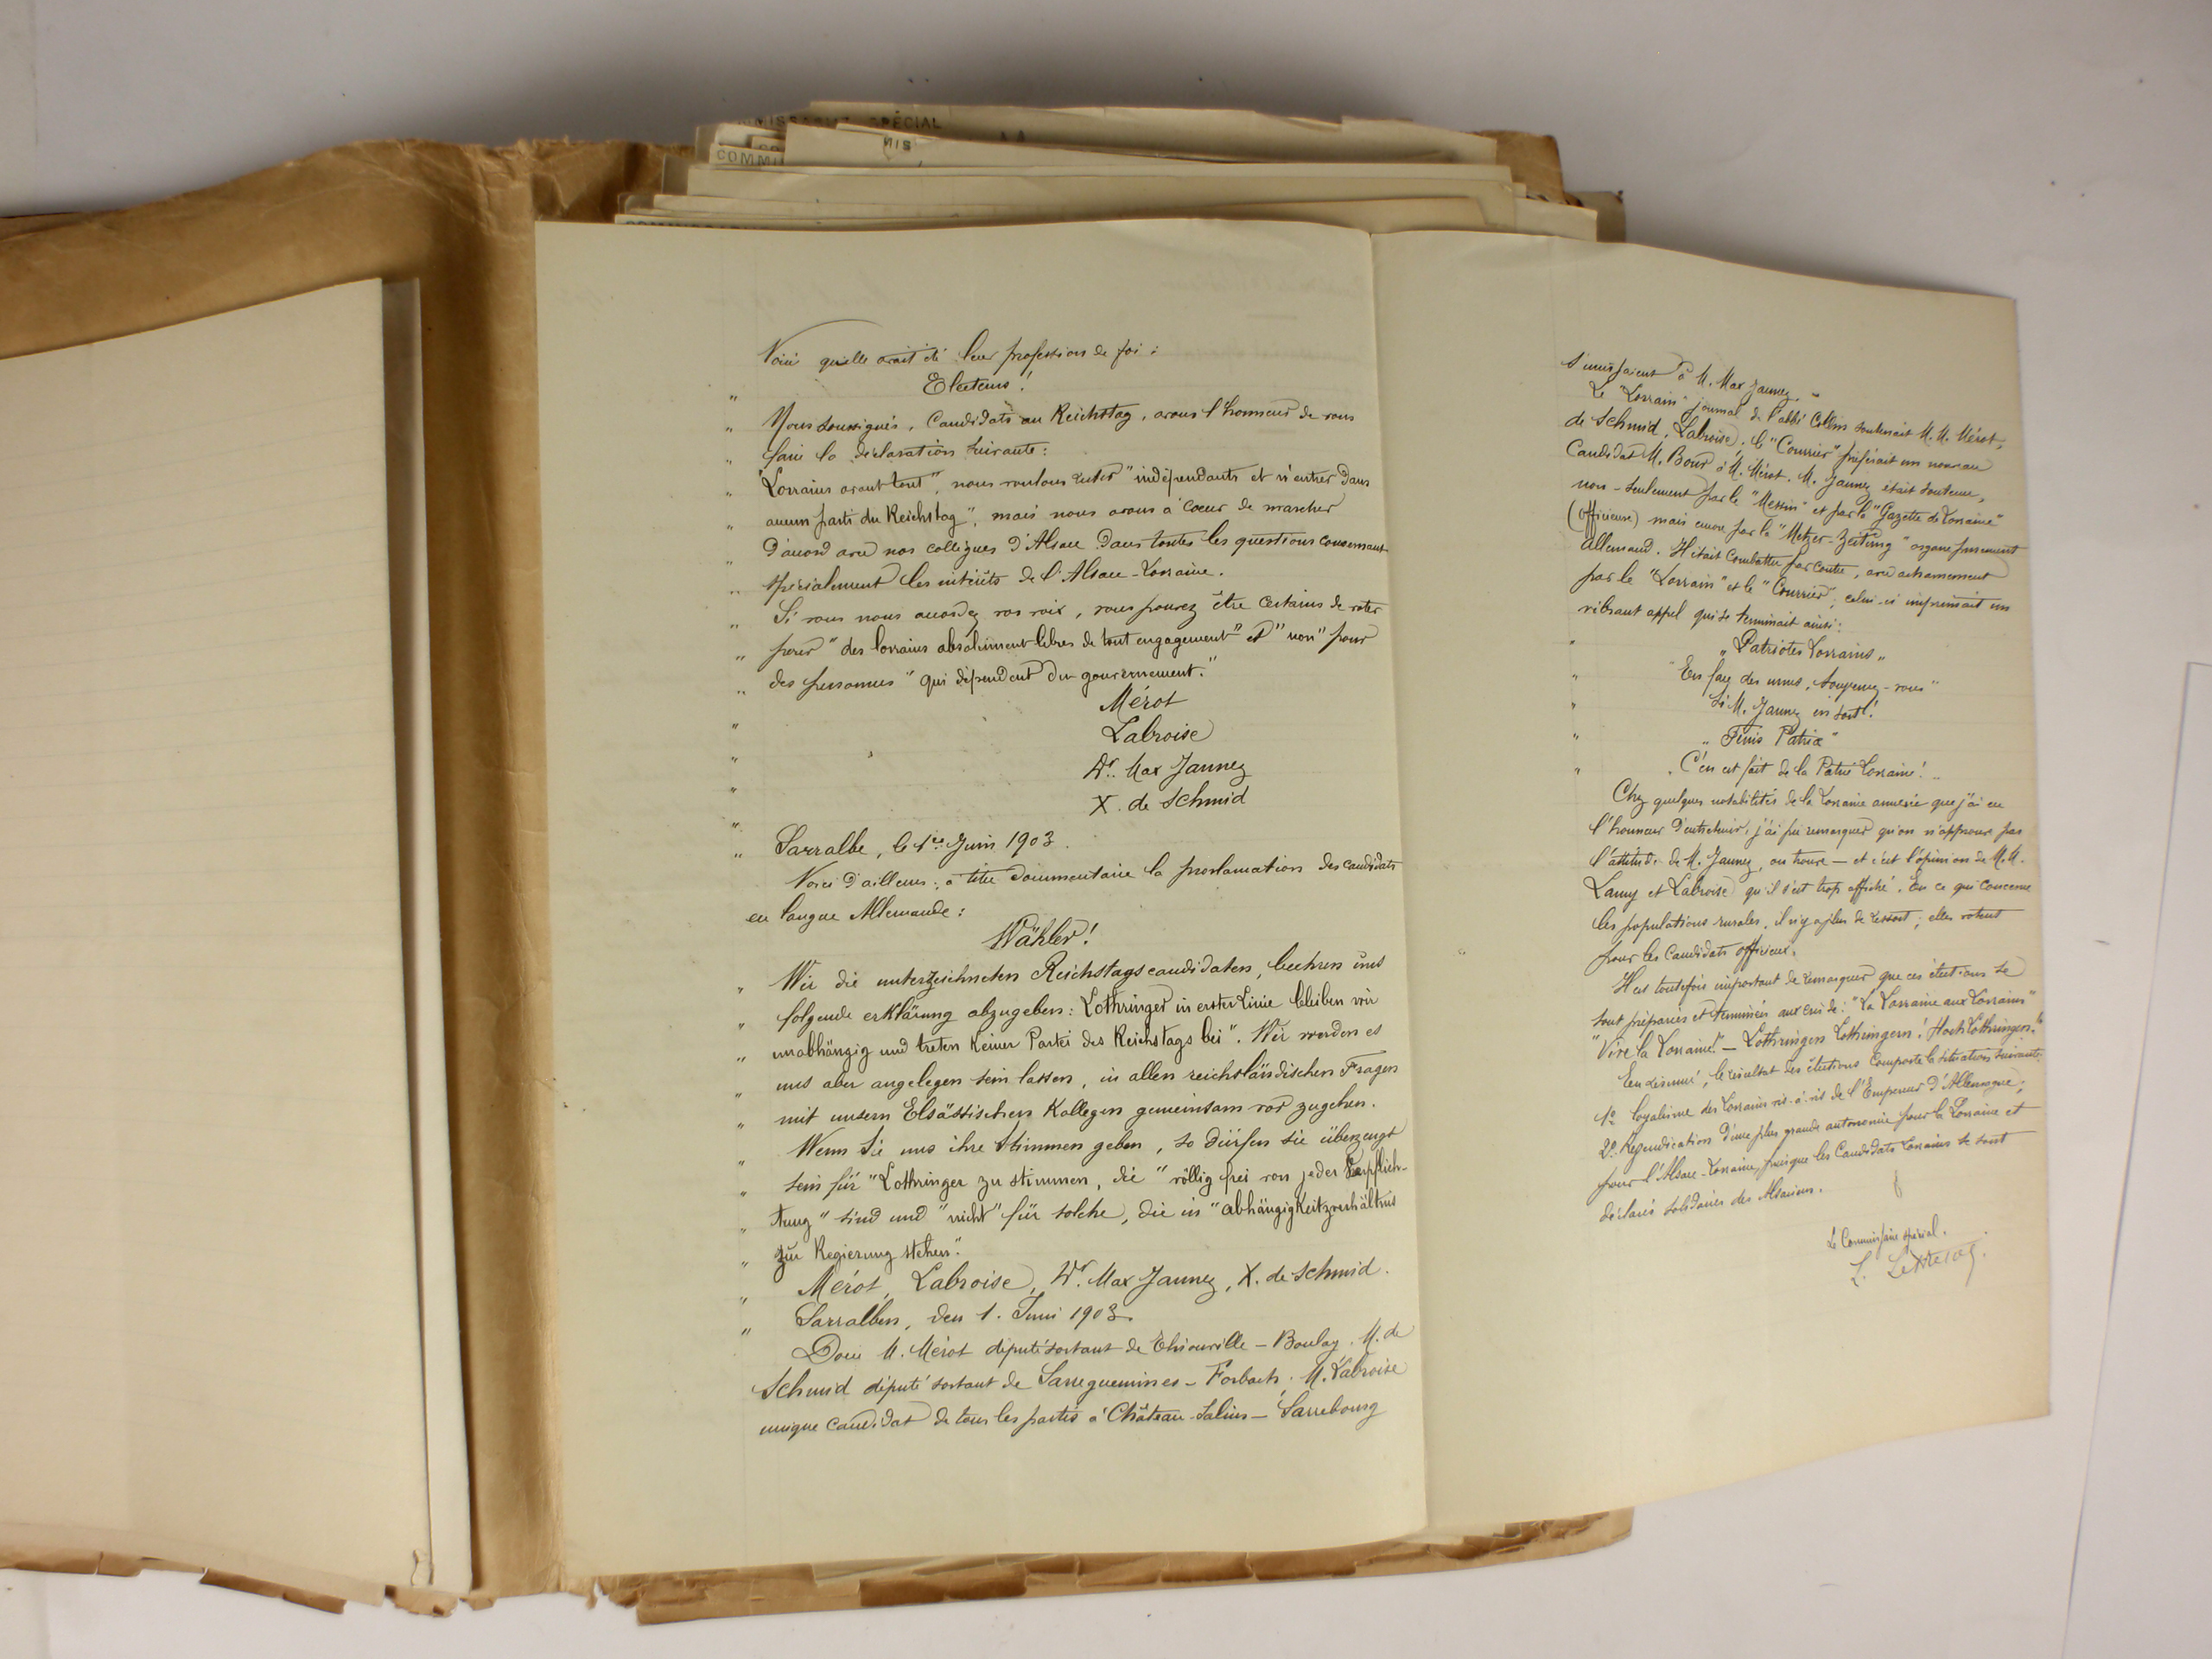 COMMISSARIAT SPÉCIAL
MIS
COMMI
Voici quelle avait été leur profession de foi :
" Electeurs !
" Nous soussignés, Candidats au Reichstag, avons l'honneur de vous
" faire la déclaration suivante :
" "Lorrains avant tout", nous voulons rester "indépendants et n'entrer dans
" aucun parti du Reichstag", mais nous avons à coeur de marcher
" d'accord avec nos collègues d'Alsace dans toutes les questions concernant
" spécialement les intérêts de l'Alsace-Lorraine.
" Si vous nous accordez vos voix, vous pouvez être certains de voter
" pour "des lorrains absolument libres de tout engagement" et "non" pour
" des personnes "qui dépendent du gouvernement."
" Mérot
" Labroise
" Dr. Max Jaunez
" X. de Schmid
" Sarralbe, le 1er Juin 1903.
Voici d'ailleurs, à titre documentaire la proclamation des candidats
en langue Allemande :
Wähler !
" Wir die unterzeichneten Reichstagscandidaten, beehren uns
" folgende erklärung abzugeben : Lothringer in erster Linie bleiben wir
" unabhängig und treten keiner Partei des Reichstags bei". Wir werden es
" uns aber angelegen sein lassen, in allen reichsländischen Fragen
" mit unsern Elsässischen Kollegen gemeinsam vor zugehen.
" Wenn Sie uns ihre Stimmen geben, so dürfen sie überzeugt
" sein für "Lothringer zu stimmen, die "völlig frei von jeder Verpflich-
" tung" sind und "nicht" für solche, die in "abhängigkeitzverhältnis
" zur Regierung stehen".
" Mérot, Labroise, Dr. Max Jaunez, X. de Schmid.
" Sarralben, den 1. Juni 1903.
Donc M. Mérot député sortant de Thionville - Boulay. M. de
Schmid député sortant de Sarreguemines - Forbach. M. Labroise
unique candidat de tous les partis à Château-Salins - Sarrebourg
s'unissaient à M. Max Jaunez.
Le "Lorrain" journal de l'abbé Collin soutenait M.M. Mérot,
de Schmid, Labroise ; le "Courrier" préférait un nouveau
Candidat M. Bour à M. Mérot. M. Jaunez était soutenu,
non-seulement par le "Messin" et par la "Gazette de Lorraine"
(Officieuse) mais encore par la "Metzer-Zeitung" organe purement
Allemand. Il était combattu par contre, avec acharnement
par le "Lorrain" et le "Courrier" ; celui-ci imprimait un
vibrant appel qui se terminait ainsi :
" "Patriotes Lorrains"
" "En face des urnes, souvenez-vous"
" Si M. Jaunez en sort !
" "Finis Patriæ"
" C'en est fait de la Patrie Lorraine !
Chez quelques notabilités de la Lorraine annexée que j'ai eu
l'honneur d'entretenir, j'ai pu remarquer qu'on n'approuve pas
l'attitude de M. Jaunez, on trouve — et c'est l'opinion de M.M.
Lamy et Labroise qu'il s'est trop affiché. En ce qui concerne
les populations rurales, il n'y a plus de ressort ; elles votent
pour les Candidats officieux.
Il est toutefois important de remarquer que ces élections se
sont préparées et terminées aux cris de : "La Lorraine aux Lorrains"
"Vive la Lorraine !" — Lothringen Lothringern ! Hoch Lothringen !"
En résumé, le résultat des élections comporte la situation suivante :
1º Loyalisme des Lorrains vis-à-vis de l'Empereur d'Allemagne ;
2º Revendication d'une plus grande autonomie pour la Lorraine et
pour l'Alsace-Lorraine, puisque les Candidats Lorrains se sont
déclarés solidaires des Alsaciens.
Le Commissaire spécial.